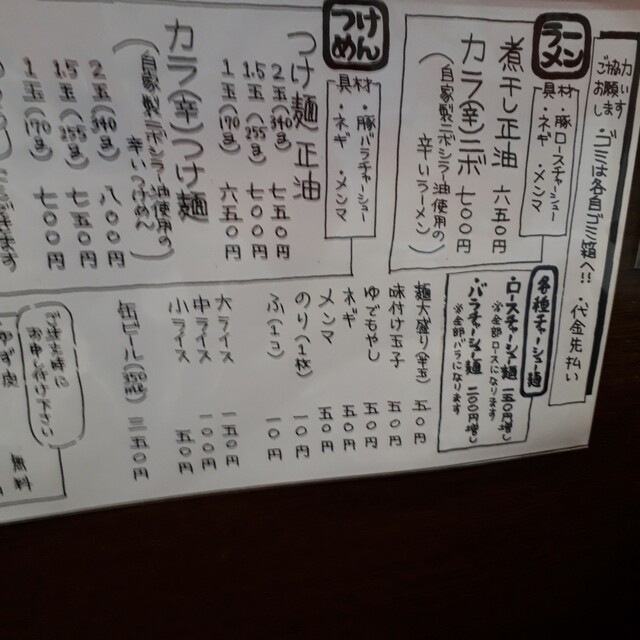 ご協力
お願い
します
・ゴミは各自ゴミ箱へ!!
・代金先払い
ラーメン
具材
・豚ロースチャーシュー
・ネギ ・メンマ
煮干し正油 六五〇円
カラ(辛)ニボ 七〇〇円
(自家製ニボシラー油使用の
辛いラーメン)
各種チャーシュー麺
・ロースチャーシュー麺 一五〇円増し
※全部ロースになります
・バラチャーシュー麺 一〇〇円増し
※全部バラになります
つけめん
具材
・豚バラチャーシュー
・ネギ ・メンマ
つけ麺 正油
2玉(340g) 七五〇円
1.5玉(255g) 七〇〇円
1玉(170g) 六五〇円
カラ(辛)つけ麺
(自家製ニボシラー油使用の
辛いつけめん)
2玉(340g) 八〇〇円
1.5玉(255g) 七五〇円
1玉(170g) 七〇〇円
できます
麺大盛り(半玉) 五〇円
味付け玉子 五〇円
ゆでもやし 五〇円
ネギ 五〇円
メンマ 五〇円
のり(1枚) 一〇円
ふ(1コ) 一〇円
大ライス 一五〇円
中ライス 一〇〇円
小ライス 五〇円
缶ビール 三五〇円
ご注文時に
お申し付け下さい
無料